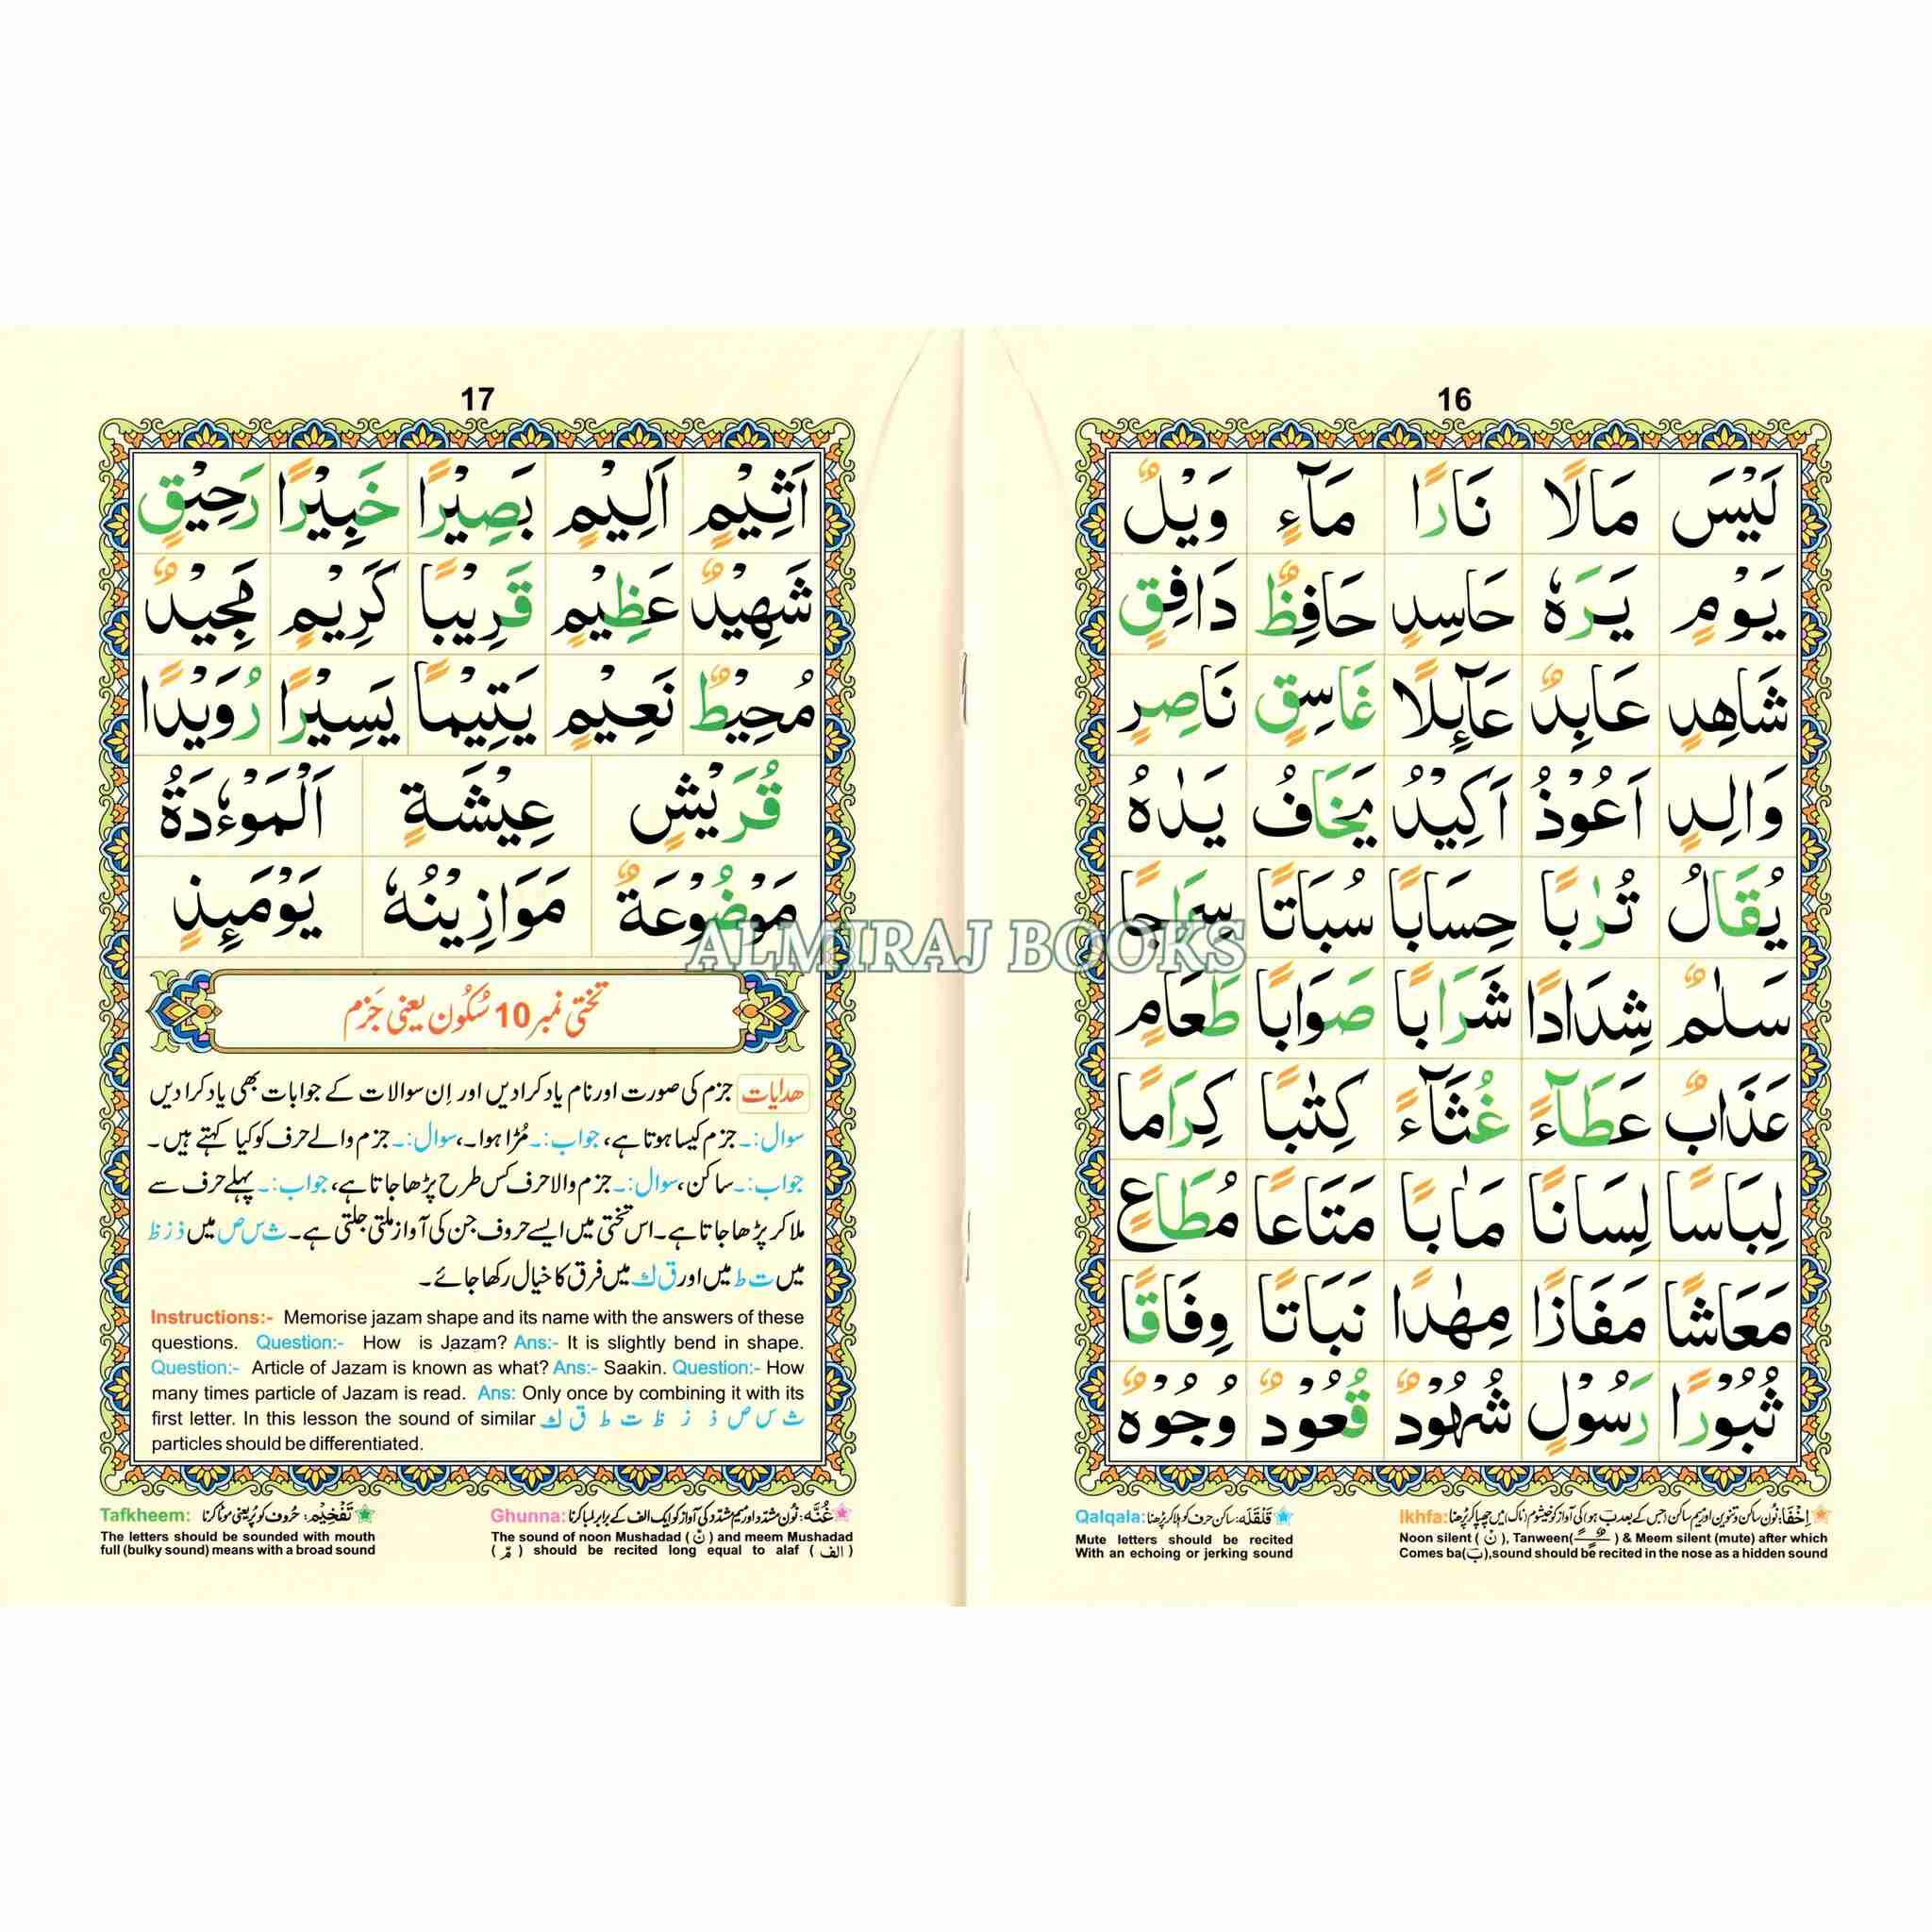 16
لَيْسَ مَالًا نَارًا مَآءٍ وَيْلٌ
يَوْمٍ يَرَهٗ حَاسِدٍ حَافِظٌ دَافِقٍ
شَاهِدٍ عَابِدٌ عَآئِلًا غَاسِقٍ نَاصِرٍ
وَالِدٍ اَعُوْذُ اَكِيْدُ يَخَافُ يَدٰهُ
يُقَالُ تُرٰبًا حِسَابًا سُبَاتًا سِرَاجًا
سَلٰمٌ شِدَادًا شَرَابًا صَوَابًا طَعَامٍ
عَذَابٌ عَطَآءً غُثَآءً كِتٰبًا كِرَامًا
لِبَاسًا لِسَانًا مَاٰبًا مَتَاعًا مُطَاعٍ
مَعَاشًا مَفَازًا مِهٰدًا نَبَاتًا وِفَاقًا
ثُبُوْرًا رَسُوْلٍ شُهُوْدٌ قُعُوْدٌ وُجُوْهٌ
Ikhfa: اِخْفَا: نُون ساکن و تنوین اور میم ساکن (جس کے بعد بَ ہو) کی آواز کو خیشوم (ناک) میں چھپا کر پڑھنا
Noon silent ( نْ ), Tanween( ) & Meem silent (mute) after which
Comes ba(بَ),sound should be recited in the nose as a hidden sound
Qalqala: قَلْقَلَه: ساکن حرف کو ہلا کر پڑھنا
Mute letters should be recited
With an echoing or jerking sound
17
اَثِيْمٍ اَلِيْمٍ بَصِيْرًا خَبِيْرًا رَحِيْقٍ
شَهِيْدٌ عَظِيْمٍ قَرِيْبًا كَرِيْمٍ مَجِيْدٌ
مُحِيْطٌ نَعِيْمٍ يَتِيْمًا يَسِيْرًا رُوَيْدًا
قُرَيْشٍ عِيْشَةٍ اَلْمَوْءٗدَةُ
مَوْضُوْعَةٌ مَوَازِيْنُهٗ يَوْمَئِذٍ
تختی نمبر 10 سُکُون یعنی جَزم
هدایات جزم کی صورت اور نام یاد کرادیں اور اِن سوالات کے جوابات بھی یاد کرا دیں
سوال:۔ جزم کیسا ہوتا ہے، جواب:۔ مُڑا ہوا۔، سوال:۔ جزم والے حرف کو کیا کہتے ہیں۔
جواب:۔ ساکن، سوال:۔ جزم والا حرف کس طرح پڑھا جاتا ہے، جواب:۔ پہلے حرف سے
ملا کر پڑھا جاتا ہے۔ اس تختی میں ایسے حروف جن کی آواز ملتی جلتی ہے۔ ث س ص میں ذ ز ظ
میں ت ط میں اور ق ک میں فرق کا خیال رکھا جائے۔
Instructions:- Memorise jazam shape and its name with the answers of these
questions. Question:- How is Jazam? Ans:- It is slightly bend in shape.
Question:- Article of Jazam is known as what? Ans:- Saakin. Question:- How
many times particle of Jazam is read. Ans: Only once by combining it with its
first letter. In this lesson the sound of similar ث س ص ذ ز ظ ت ط ق ك
particles should be differentiated.
Ghunna: غُنَّه: نُون مشدّد اور میم مشدّد کی آواز کو ایک الف کے برابر لمبا کرنا
The sound of noon Mushadad ( نّ ) and meem Mushadad
( مّ ) should be recited long equal to alaf ( الف )
Tafkheem: تَفْخِيْم: حُروف کو پُر یعنی موٹا کرنا
The letters should be sounded with mouth
full (bulky sound) means with a broad sound
ALMIRAJ BOOKS